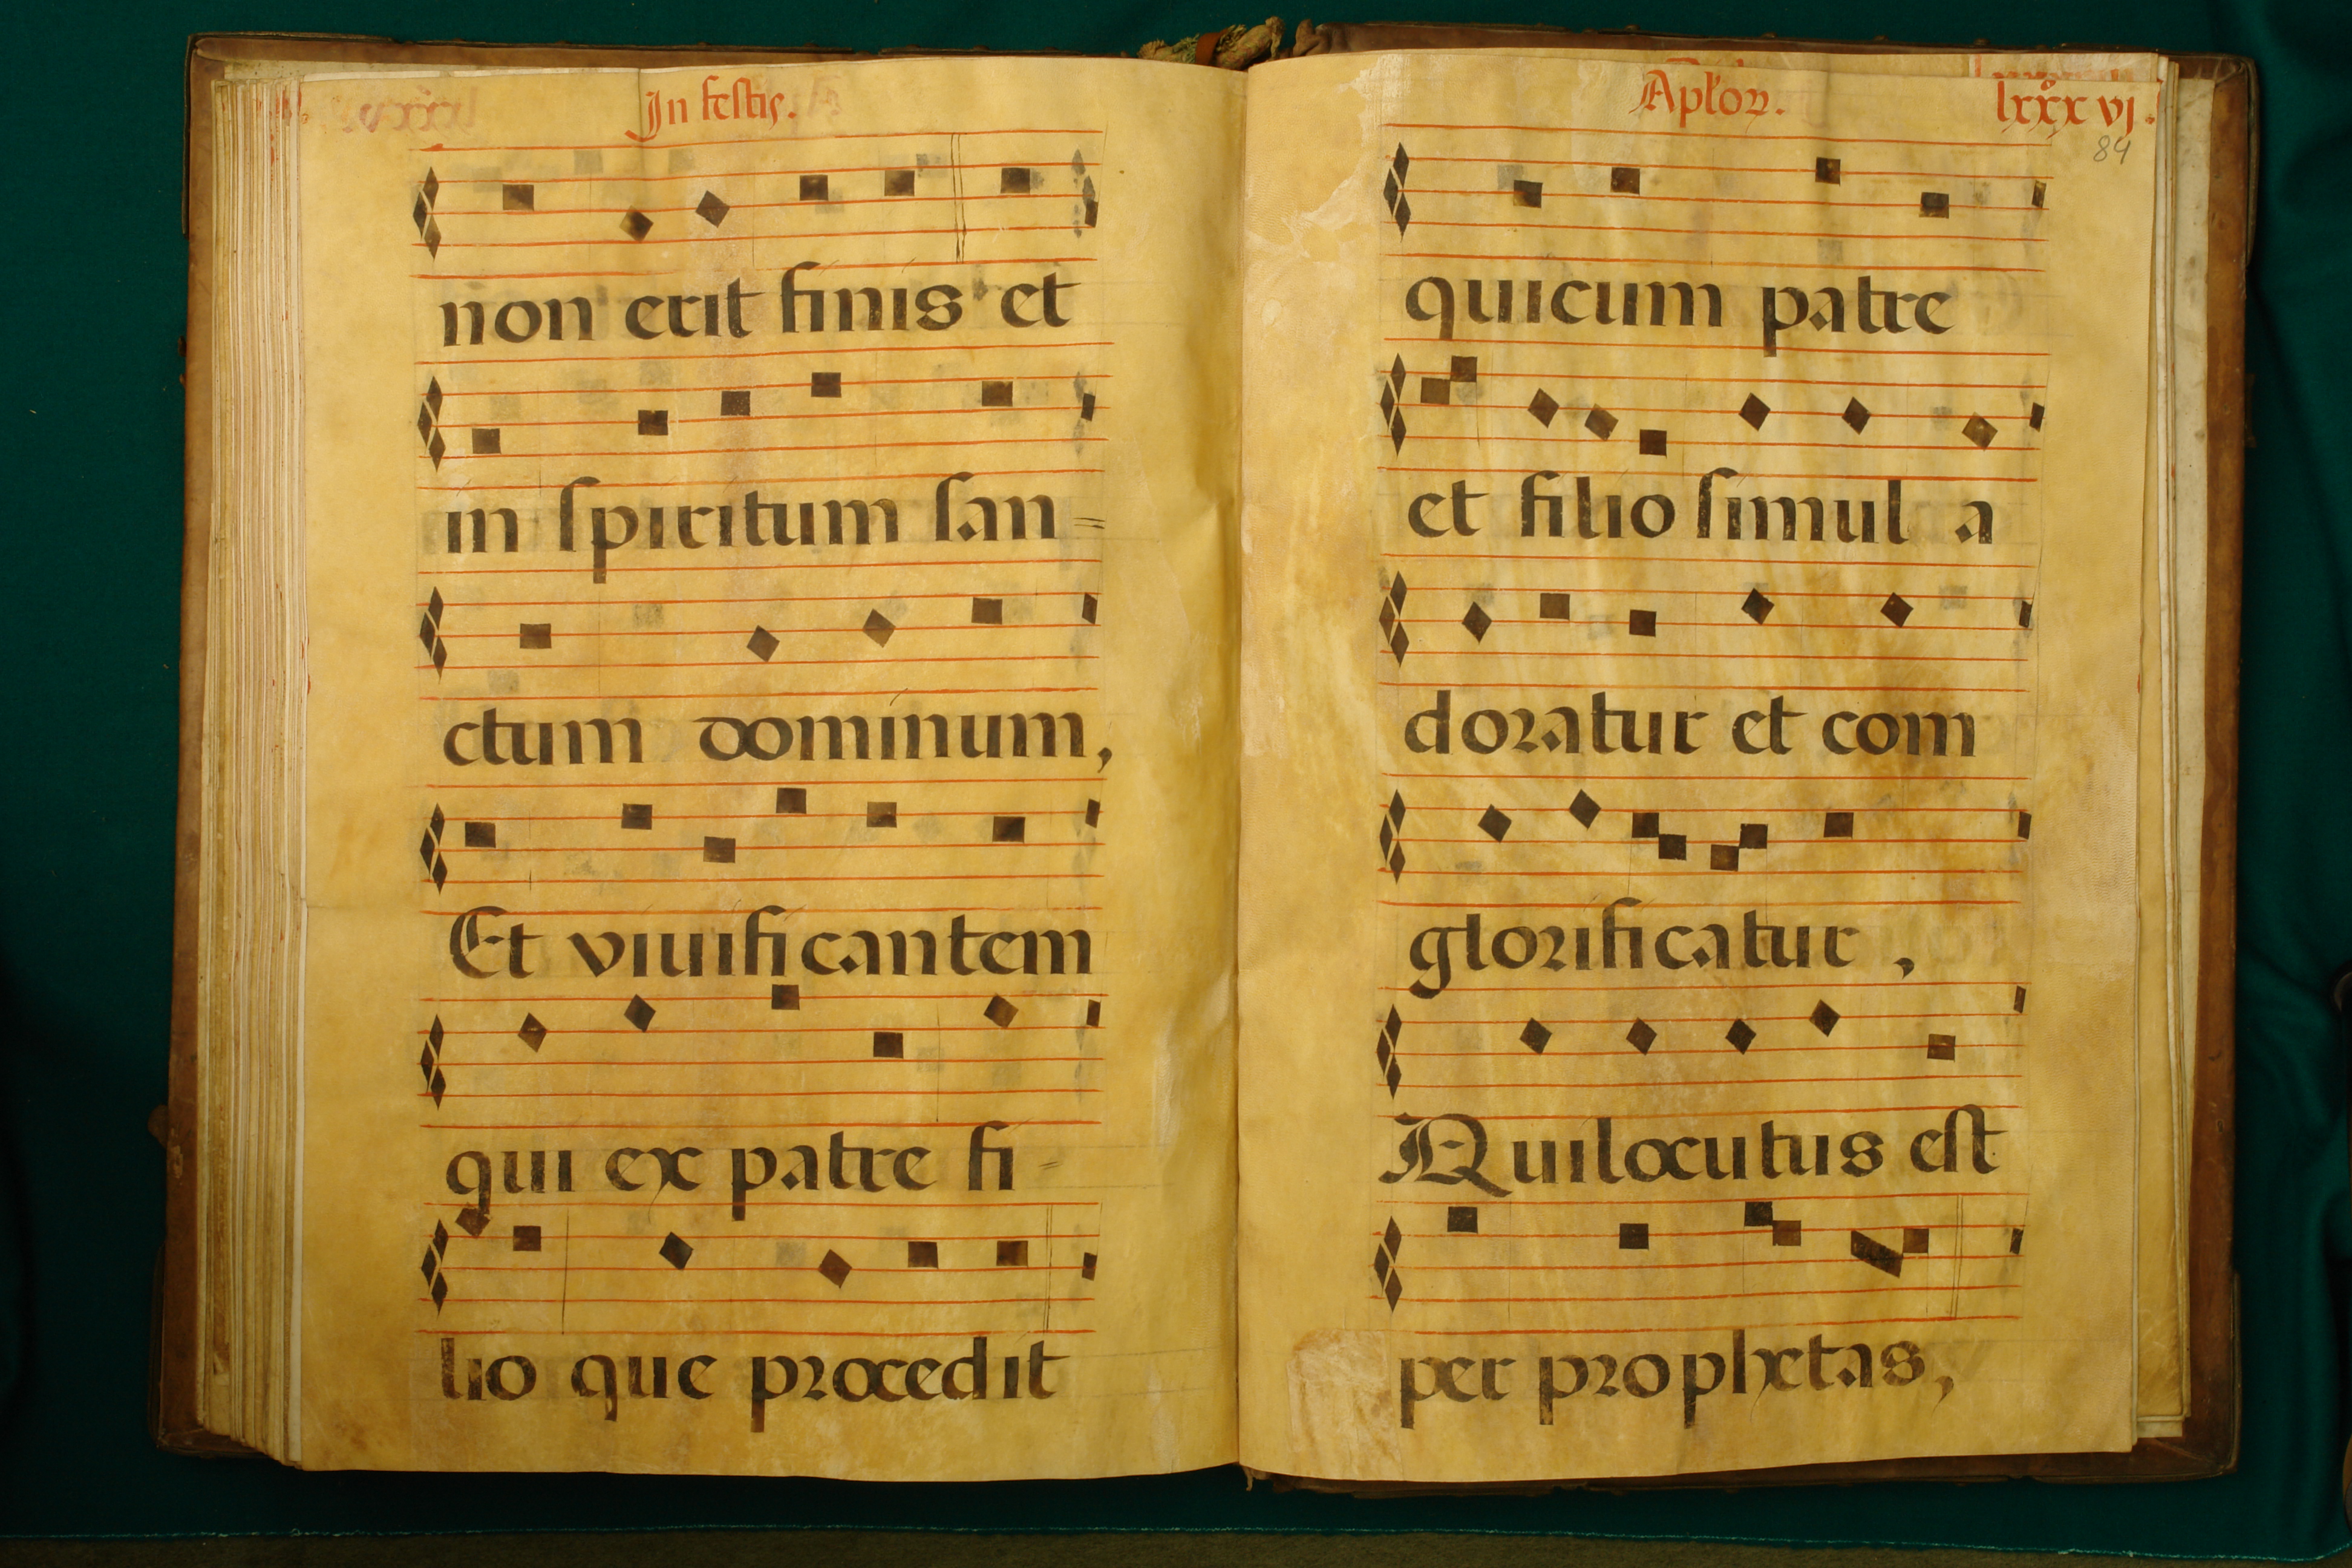 In festis.
non erit finis et
in spiritum san=
ctum dominum,
Et viuificantem
qui ex patre fi-
lio que procedit
Aploꝝ.
lxxxvj.
84
quicum patre
et filio simul a
doratur et com
glorificatur,
Quilocutus est
per prophetas,